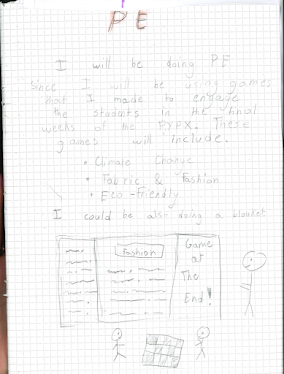 PE
I will be doing PE
Since I will be using games
that I made to engage
the students in the final
weeks of the PYPX. These
games will include.
• Climate Change
• Fabric & Fashion
• Eco-friendly
I could be also doing a blanket
Fashion
Game
at
The
End!